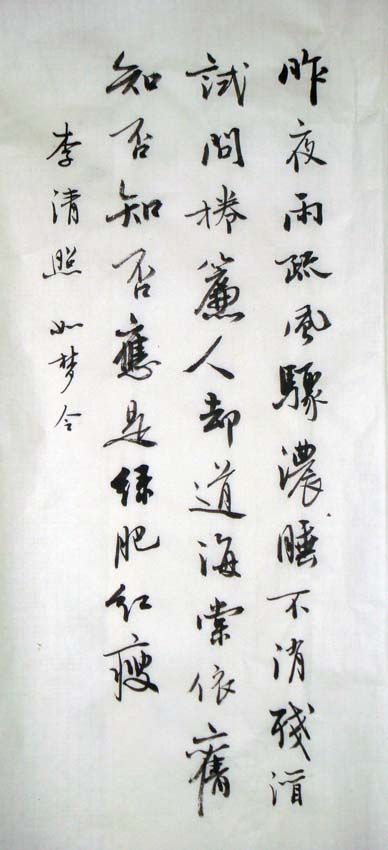 昨夜雨疏风驟濃睡不消残酒
試問捲簾人却道海棠依舊
知否知否應是绿肥红瘦
李清照 如梦令